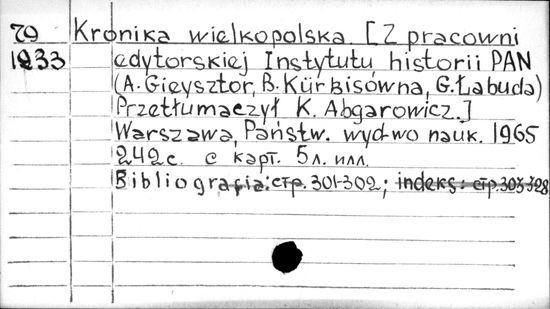 70 Kronika wielkopolska. [Z pracowni
1233 edytorskiej Instytutu historii PAN
(A. Gieysztor, B. Kürbisówna, G. Łabuda)
Przetłumaczył K. Abgarowicz.]
Warszawa, Państw. wyd-wo nauk. 1965
242 с. с карт. 5 л. илл.
Bibliografia: стр. 301-302; indeks: стр. 303-328